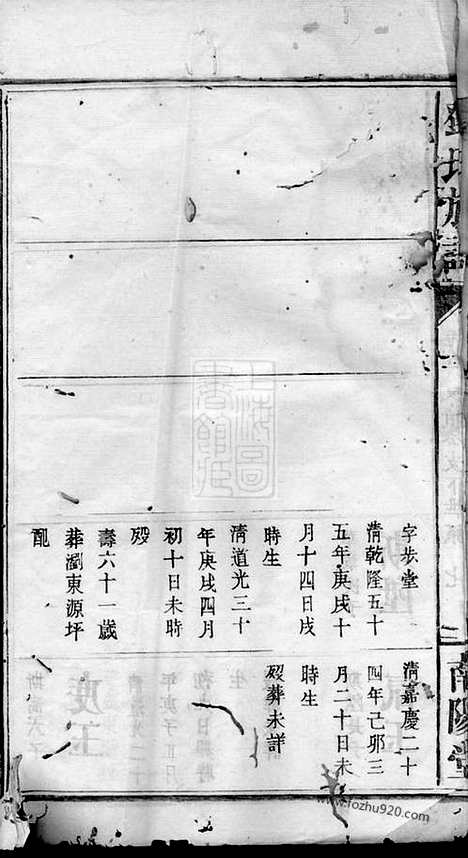 氏族譜
南陽堂
字步堂
清乾隆五十
五年庚戌十
月十四日戌
時生
清道光三十
年庚戌四月
初十日未時
殁
壽六十一歲
葬瀏東源坪
配
清嘉慶二十
四年己卯三
月二十日未
時生
殁葬未詳
上海圖書館藏
www.fozhu920.com